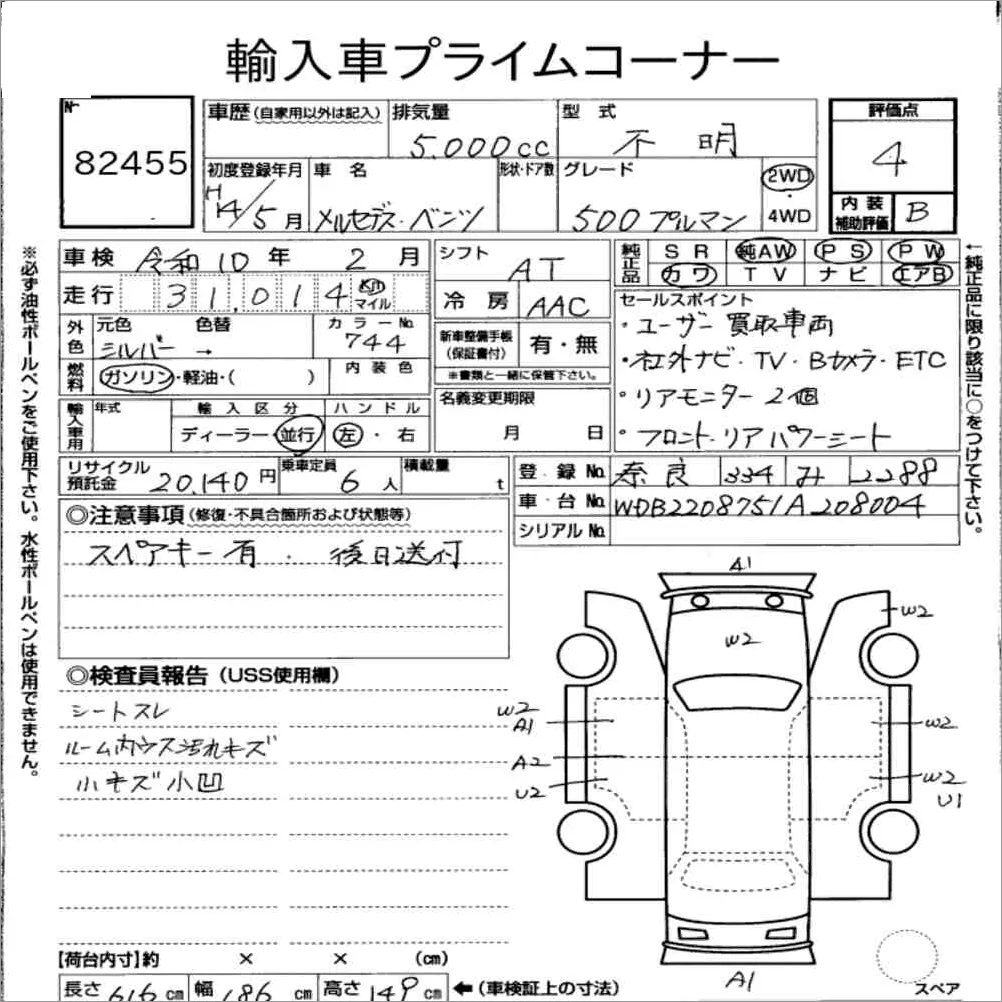 輸入車プライムコーナー
№ 82455
車歴 (自家用以外は記入) 排気量 5.000cc 型式 不明 評価点 4
初度登録年月 H14/5月 車名 メルセデス・ベンツ 形状・ドア数 グレード 500プルマン 2WD 4WD 内装補助評価 B
車検 令和10年 2月 シフト AT 純正品 SR 純AW PS PW
カワ TV ナビ エアB
走行 31,014 Km マイル 冷房 AAC セールスポイント
・ユーザー買取車両
外色 元色 シルバー 色替 → カラーNo. 744 新車整備手帳(保証書付) 有・無 ・社外ナビ・TV・Bカメラ・ETC
燃料 ガソリン・軽油・( ) 内装色 ※書類と一緒に保管下さい。
・リアモニター2個
輸入車用 年式 輸入区分 ディーラー・並行 ハンドル 左・右 名義変更期限 月 日 ・フロント・リアパワーシート
リサイクル預託金 20,140円 乗車定員 6人 積載量 t 登録No. 奈良 334 み 2288
車台No. WDB2208751A208004
シリアルNo.
◎注意事項 (修復・不具合箇所および状態等)
スペアキー有・後日送付
◎検査員報告 (USS使用欄)
シートスレ
ルーム内ウス汚れキズ
小キズ小凹
A1
W2
W2
W2
A1
W2
A2
U2
W2
U1
A1
スペア
【荷台内寸】約 × × (cm)
長さ 616cm 幅 186cm 高さ 149cm ←(車検証上の寸法)
※必ず油性ボールペンをご使用下さい。水性ボールペンは使用できません。
←純正品に限り該当に○をつけて下さい。